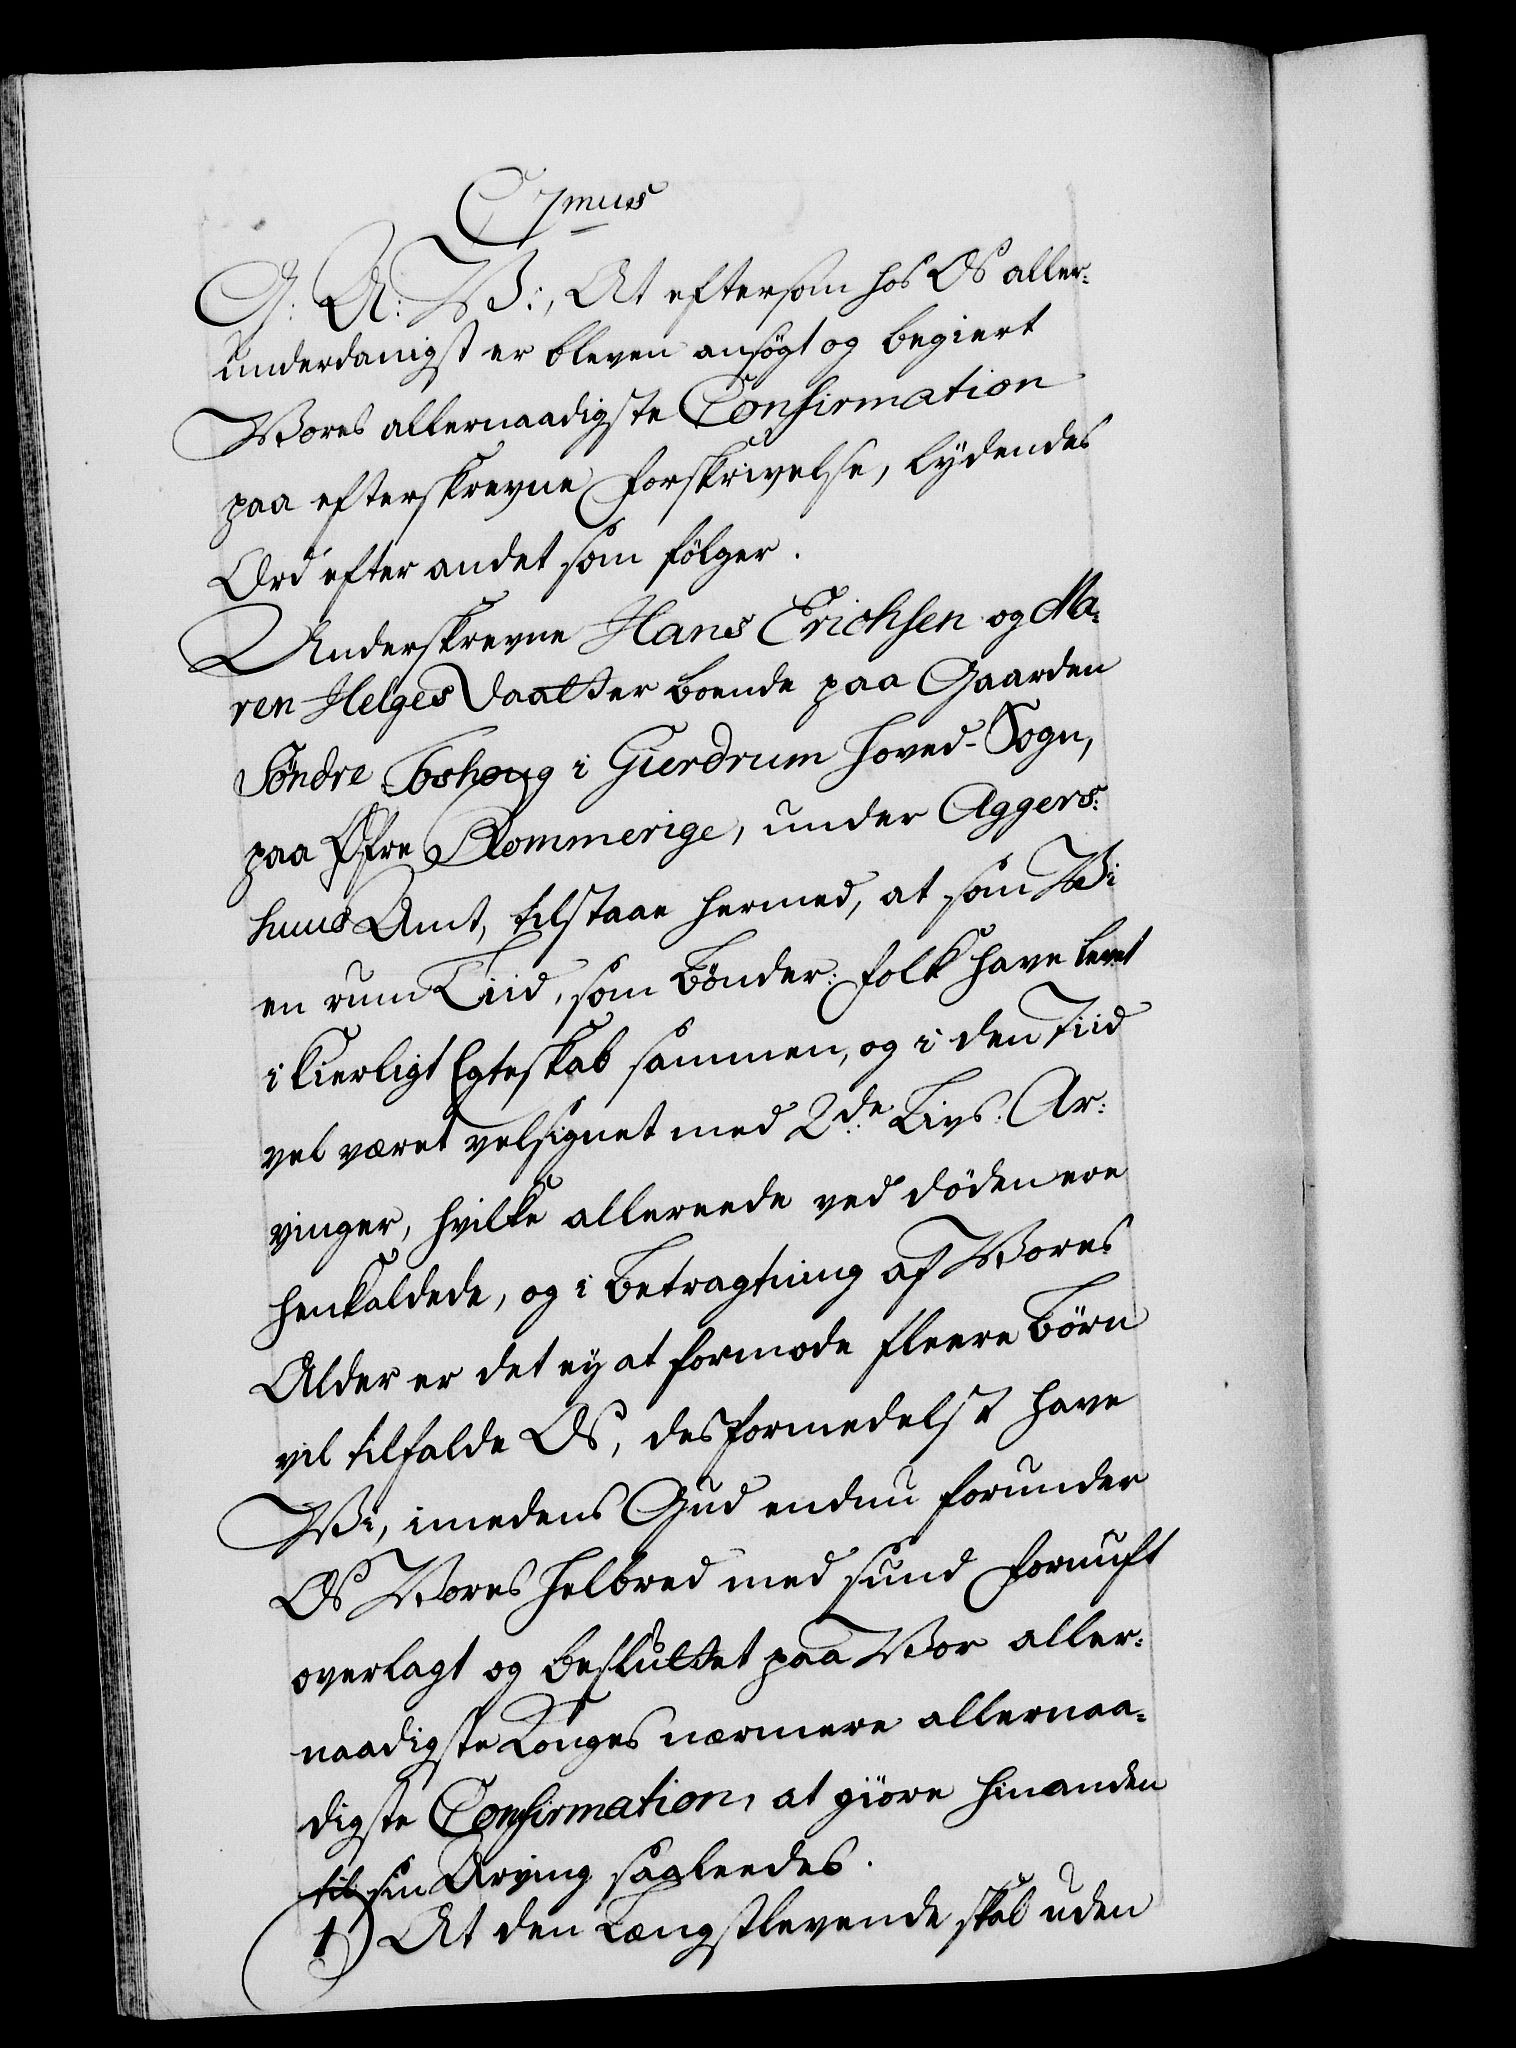 C 7mus
G: A: V:, At eftersom hos Os aller-
underdanigst er bleven ansøgt og begiert
Vores allernaadigste Confirmation
paa efterskrevne Forskrivelse, lydendes
Ord efter andet som følger.
Underskrevne Hans Erichsen og Ma-
ren Helges Daatter boende paa Gaarden
Söndre Toshoug i Gierdrum Hoved-Sogn,
paa Øfre Rommerige, under Aggers-
huus Amt, tilstaae hermed, at som Vi
en rum Tiid, som Bönder-folk have levet
i kierligt Egteskab sammen, og i den Tiid
vel været velsignet med 2de Livs-Ar-
vinger, hvilke allereede ved döden ere
henkaldede, og i betragtning af Vores
Alder er det ey at formode fleere Börn
vil tilfalde Os, desformedelst have
Vi, imedens Gud endnu forunder
Os Vores Helbred med sund Fornuft
overlagt og besluttet paa Vor aller-
naadigste Konges nærmere allernaa-
digste Confirmation, at giöre hinanden
til sin Arving saaleedes.
1) At den Længstlevende skal uden